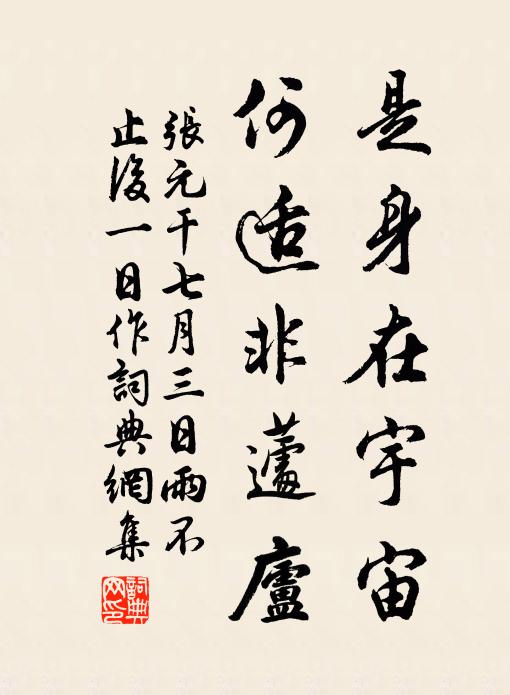 是身在宇宙
何适非蘧廬
張元干七月三日雨不
止後一日作詞典網集
詞典网印